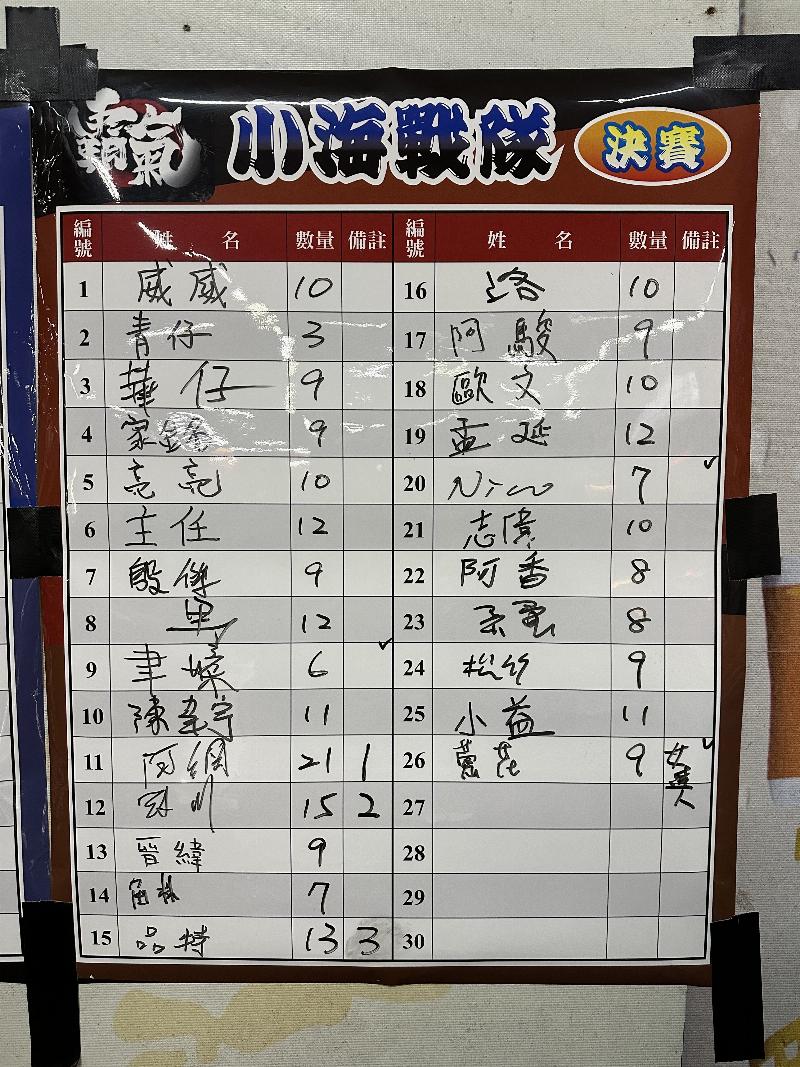 霸氣 小海戰隊 決賽
編號 姓名 數量 備註 編號 姓名 數量 備註
1 威威 10 16 洛 10
2 青仔 3 17 阿駿 9
3 華仔 9 18 歐文 10
4 家鑫 9 19 孟延 12
5 亮亮 10 20 Nico 7 ✓
6 主任 12 21 志偉 10
7 殷傑 9 22 阿香 8
8 12 23 8
9 6 ✓ 24 松竹 9
10 陳建宇 11 25 小益 11
11 阿綢 21 1 26 9 女達人 ✓
12 冠州 15 2 27
13 晉緯 9 28
14 7 29
15 品特 13 3 30